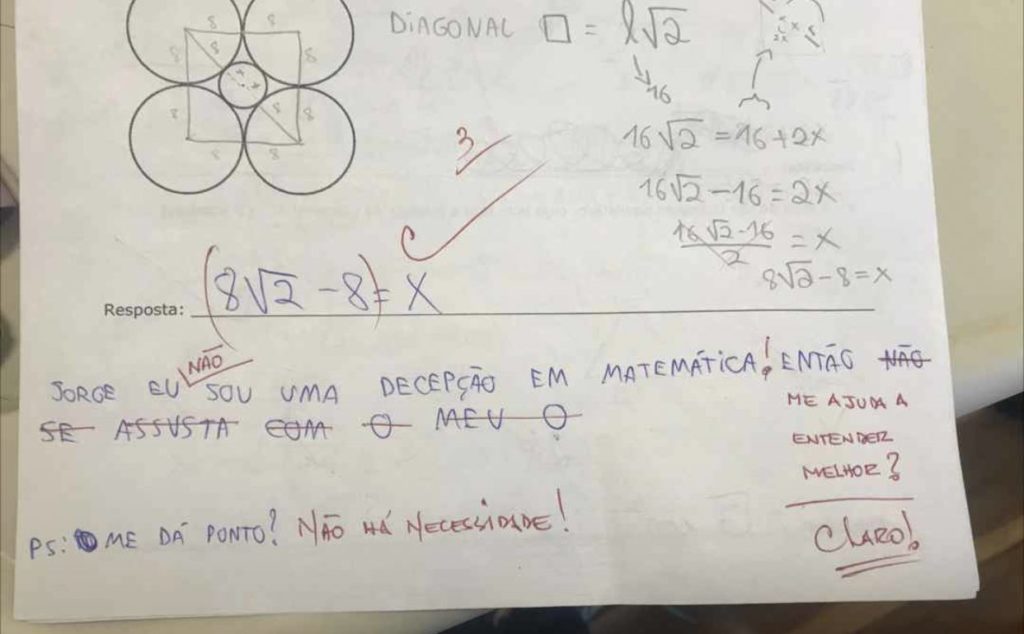 8 8
8 8 8
8 8 8
8 8
DIAGONAL □ = l√2
16
16√2 = 16 + 2x
16√2 - 16 = 2x
16√2 - 16 / 2 = x
8√2 - 8 = x
3
C
Resposta: (8√2 - 8) = X
NÃO
JORGE EU SOU UMA DECEPÇÃO EM MATEMÁTICA! ENTÃO NÃO
SE ASSUSTA COM O MEU O
ME AJUDA A
ENTENDER
MELHOR?
CLARO!
PS: ME DÁ PONTO? NÃO HÁ NECESSIDADE!